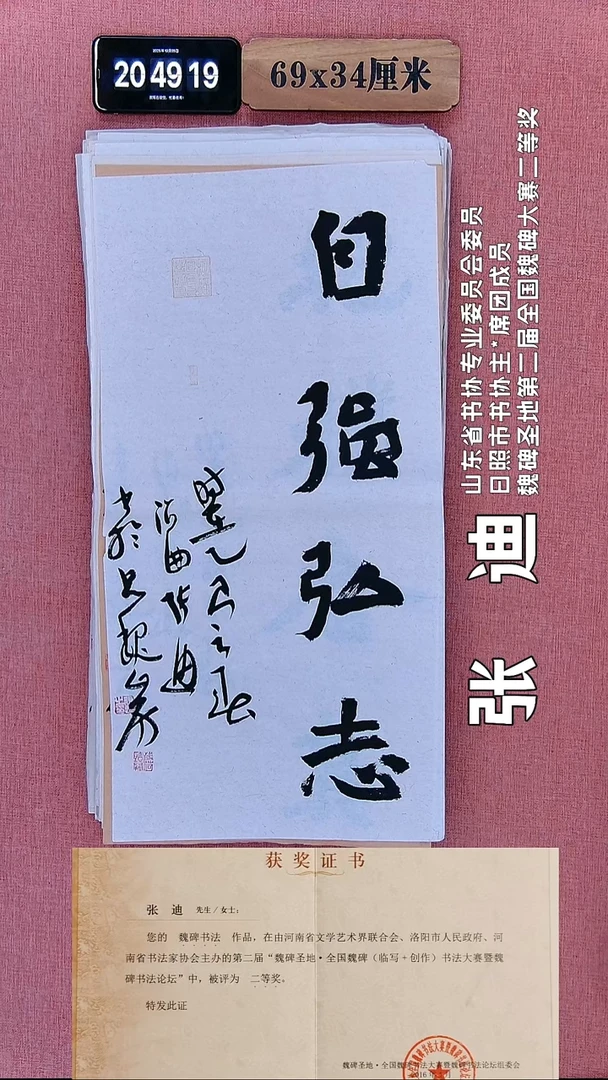 20 49 19
69x34厘米
自强弘志
海曲张迪
山东省书协专业委员会委员
日照市书协主*席团成员
魏碑圣地第二届全国魏碑大赛二等奖
张 迪
获奖证书
张 迪 先生/女士：
您的 魏碑书法 作品，在由河南省文学艺术界联合会、洛阳市人民政府、河
南省书法家协会主办的第二届“魏碑圣地·全国魏碑（临写+创作）书法大赛暨魏
碑书法论坛”中，被评为 二等奖。
特发此证
魏碑圣地·全国魏碑书法大赛暨魏碑书法论坛组委会